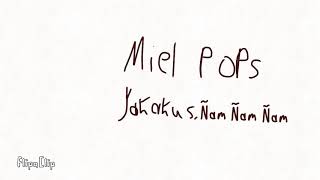 Miel POPs
Yakakus, Ñam Ñam Ñam
FlipaClip